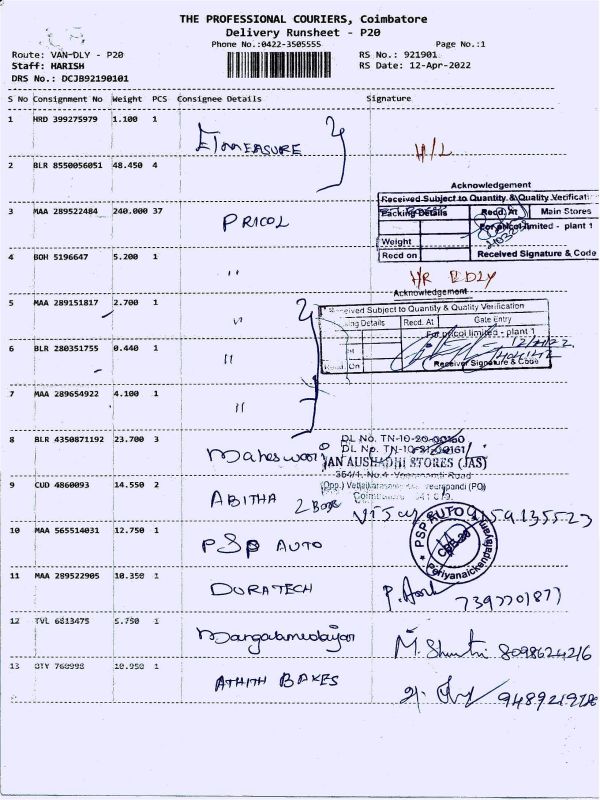 THE PROFESSIONAL COURIERS, Coimbatore
Delivery Runsheet - P20
Phone No.:0422-3505555 Page No.:1
Route: VAN-DLY - P20 RS No.: 921901
Staff: HARISH RS Date: 12-Apr-2022
DRS No.: DCJB92190101
S No Consignment No Weight PCS Consignee Details Signature
1 HRD 399275979 1.100 1
ETMEASURE H/L
2 BLR 8550056051 48.450 4
Acknowledgement
Received Subject to Quantity & Quality Verificati
Packing Details Recd. At Main Stores
3 MAA 289522484 240.000 37 PRICOL
For pricol limited - plant 1
Weight
Recd on Received Signature & Code
4 BOH 5196647 5.200 1 "
H/R DDLY
Acknowledgement
5 MAA 289151817 2.700 1 "
Received Subject to Quantity & Quality Verification
Recd. At Gate Entry
For pricol limited - plant 1
6 BLR 280351755 0.440 1 "
Receiver Signature & Code
7 MAA 289654922 4.100 1 "
8 BLR 4350871192 23.700 3 Maheswari
DL No. TN-10-20-00160
DL No. TN-10-21-00161
JAN AUSHADHI STORES (JAS)
9 CUD 4860093 14.550 2 ABITHA 2 Box
10 MAA 565514031 12.750 1 PSP AUTO
PSP AUTO
Periyanaickenpalayam
11 MAA 289522905 10.350 1 DURATECH
12 TVL 6813475 5.750 1
M. Shanthi 8098624216
13 OTY 760998 10.950 1 ATHITH BAKES